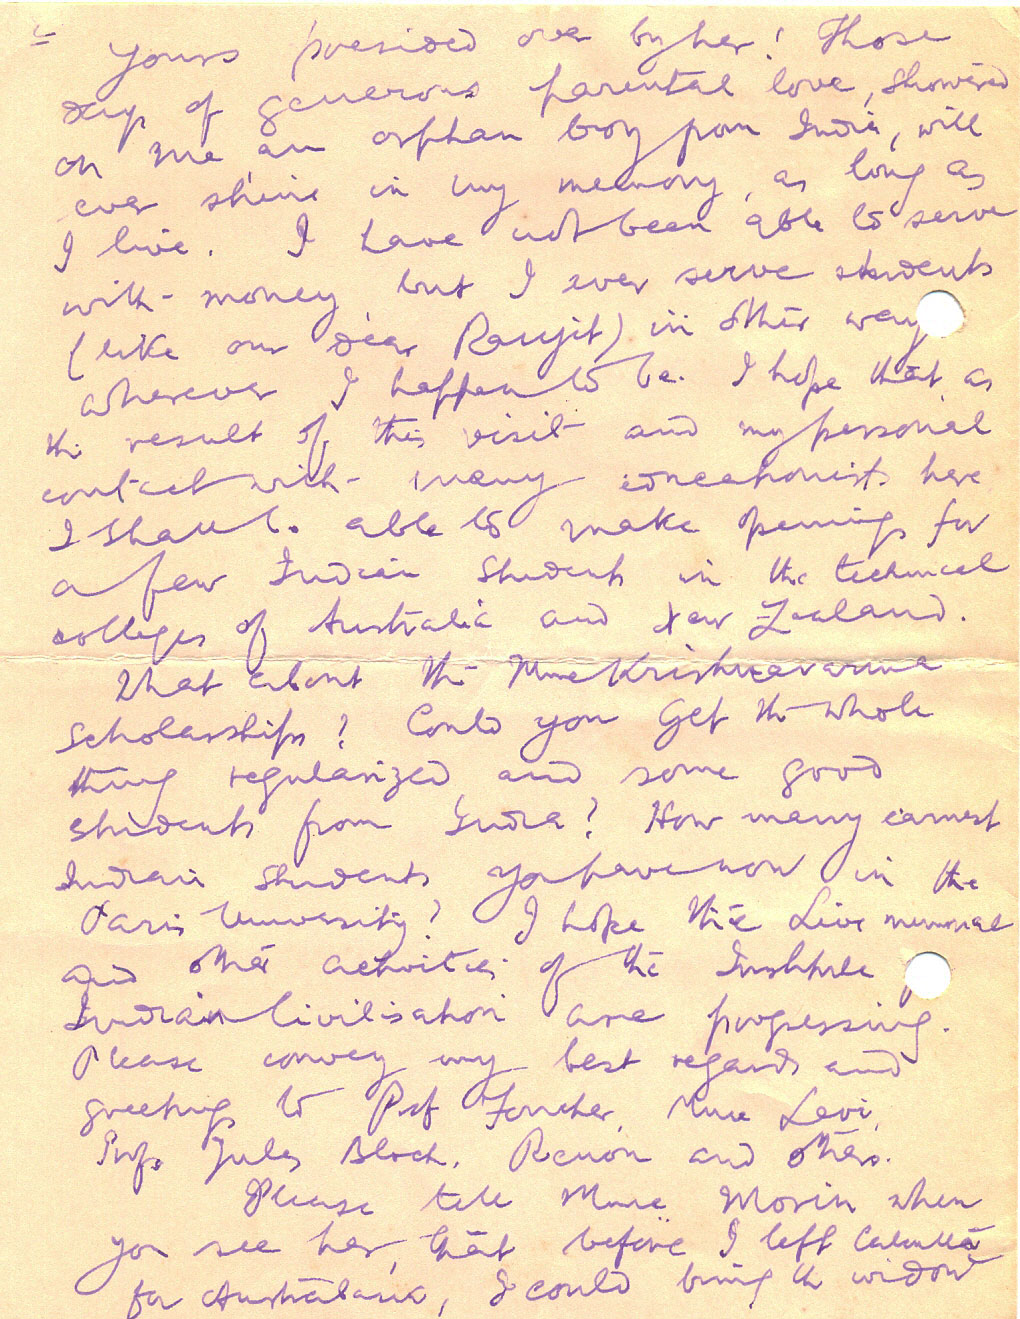 Yours presided over by her! Those
days of generous parental love, showered
on me an orphan boy from India, will
ever shine in my memory, as long as
I live. I have not been able to serve
with money but I ever serve students
(like our dear Ranjit) in other way
wherever I happen to be. I hope that as
the result of this visit and my personal
contact with many educationists here
I shall be able to make openings for
a few Indian Students in the technical
colleges of Australia and New Zealand.
What about the Mme Krishnavarma
Scholarships? Could you Get the whole
thing regularized and some good
students from India? How many earnest
Indian students you have now in the
Paris University? I hope the Levi memorial
and other activities of the Institute
Indian Civilisation are progressing.
Please convey my best regards and
greetings to Prof Foucher, Mme Levi,
Profs Jules Bloch, Renou and others.
Please tell Mme Morin when
you see her, that before I left Calcutta
for Australasia, I could bring the widow